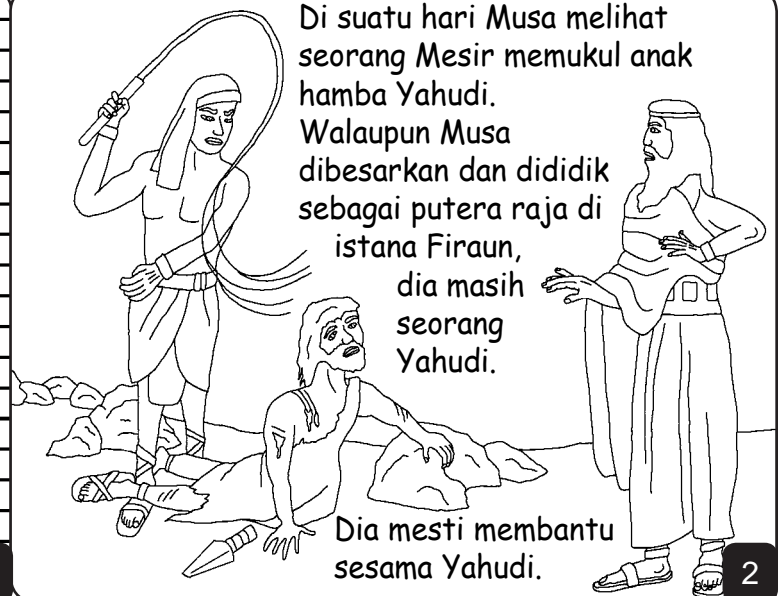 Di suatu hari Musa melihat
seorang Mesir memukul anak
hamba Yahudi.
Walaupun Musa
dibesarkan dan dididik
sebagai putera raja di
istana Firaun,
dia masih
seorang
Yahudi.
Dia mesti membantu
sesama Yahudi.
2